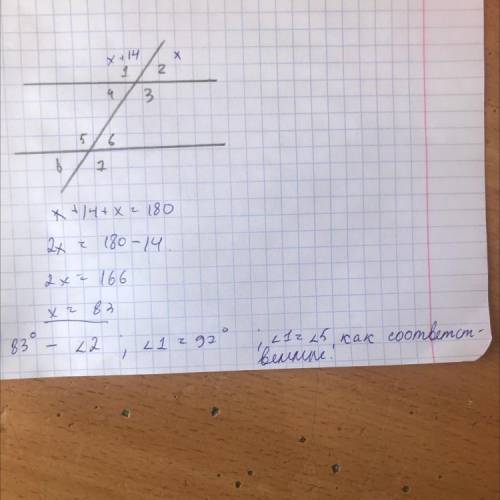 x+14 x
1 2
4 3
5 6
8 7
x+14+x=180
2x = 180-14
2x = 166
x = 83
83° - ∠2 ; ∠1 = 97° ; ∠1=∠5, как соответст-
венные.